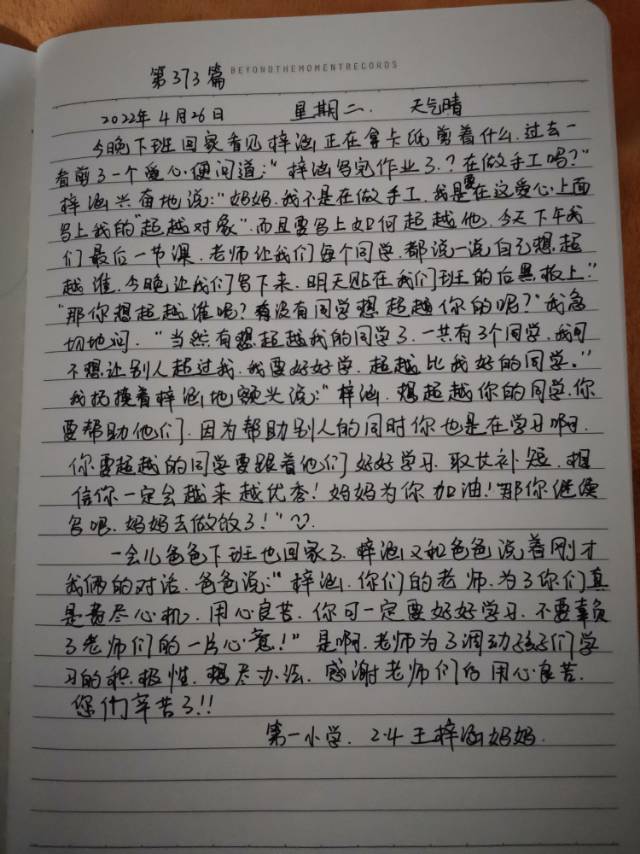 第373篇 BEYONDTHEMOMENTRECORDS
2022年4月26日 星期二. 天气晴
今晚下班回家看见梓涵正在拿卡纸剪着什么.过去一
看剪了一个爱心.便问道:“梓涵写完作业了.?在做手工吗?”
梓涵兴奋地说:“妈妈.我不是在做手工.我是要在这爱心上面
写上我的“超越对象”.而且要写上如何超越他.今天下午我
们最后一节课.老师让我们每个同学.都说一说自己想超
越谁.今晚让我们写下来.明天贴在我们班的后黑板上.”
“那你想超越谁呢?有没有同学想超越你的呢?”我急
切地问.“当然有想超越我的同学了.一共有3个同学.我可
不想让别人超过我.我要好好学.超越比我好的同学。”
我抚摸着梓涵地额头说:“梓涵.想超越你的同学.你
要帮助他们.因为帮助别人的同时你也是在学习啊.
你要超越的同学要跟着他们好好学习.取长补短.相
信你一定会越来越优秀!妈妈为你加油!那你继续
写吧.妈妈去做饭了!”
一会儿爸爸下班也回家了.梓涵又和爸爸说着刚才
我俩的对话.爸爸说:“梓涵.你们的老师.为了你们真
是费尽心机.用心良苦.你可一定要好好学习.不要辜负
了老师们的一片心意!”是啊.老师为了调动孩子们学
习的积极性.想尽办法.感谢老师们的用心良苦.
您们辛苦了!!
第一小学.2.4王梓涵妈妈.